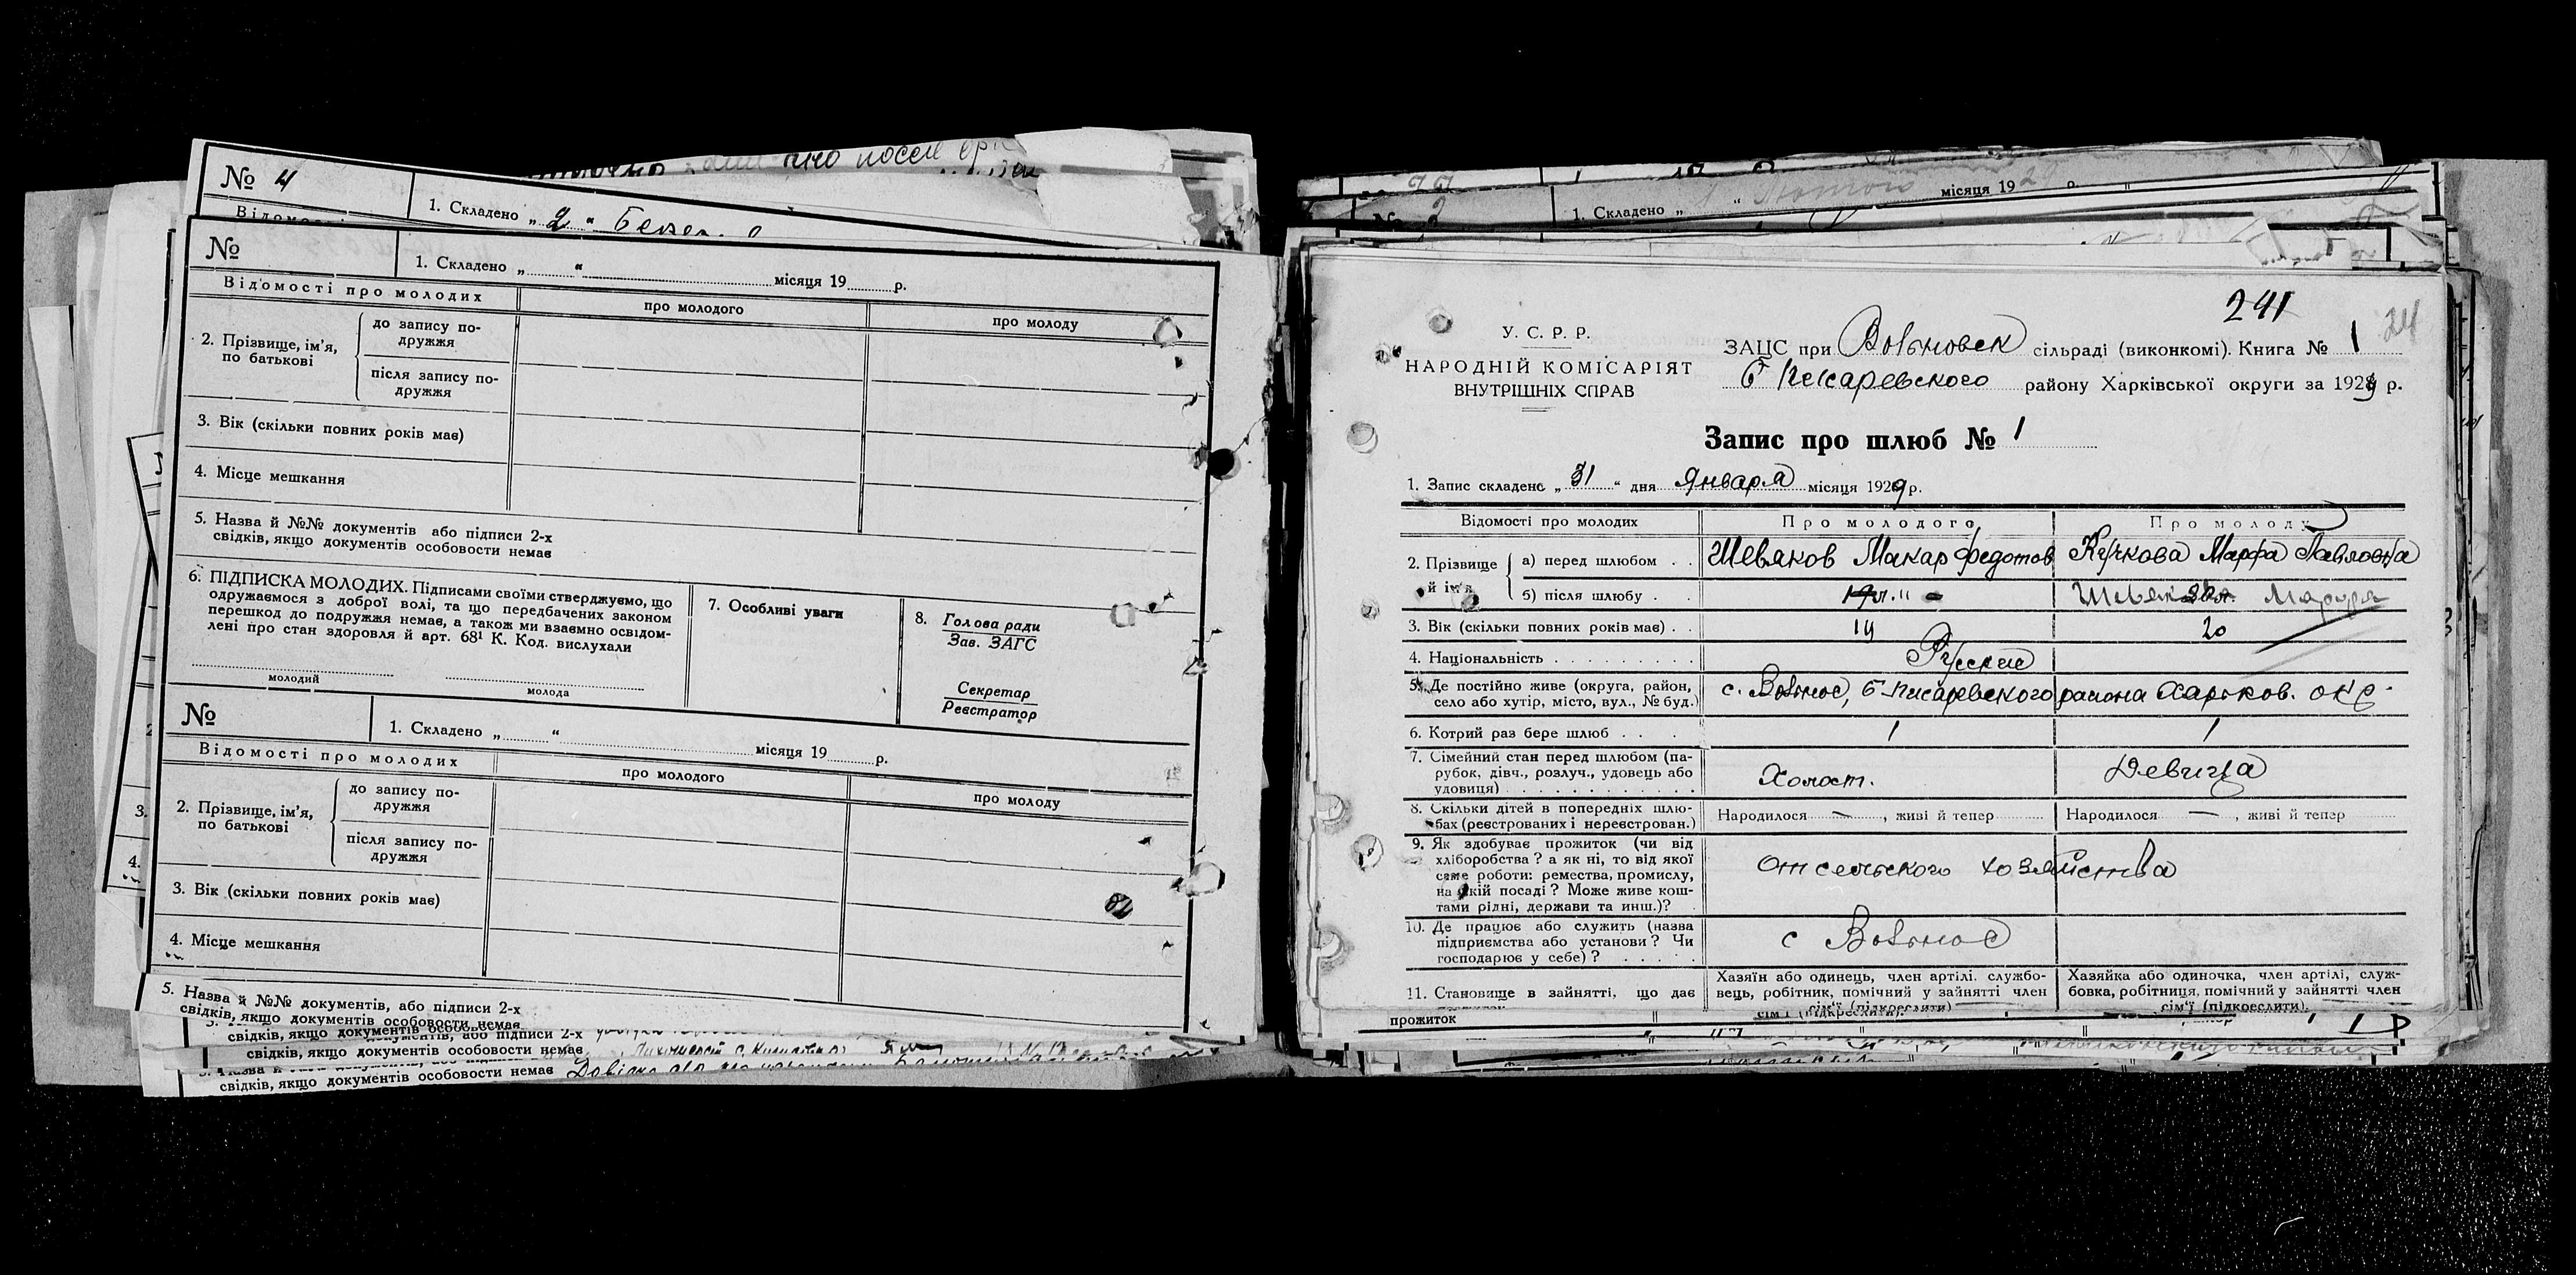 № 4
1. Складено „ 2 “
№
1. Складено „ “ місяця 19 р.
Відомості про молодих
про молодого
про молоду
2. Прізвище, ім'я, по батькові
до запису по-
дружжя
після запису по-
дружжя
3. Вік (скільки повних років має)
4. Місце мешкання
5. Назва й №№ документів або підписи 2-х
свідків, якщо документів особовости немає
6. ПІДПИСКА МОЛОДИХ. Підписами своїми стверджуємо, що
одружаємося з доброї волі, та що передбачених законом
перешкод до подружжя немає, а також ми взаємно освідом-
лені про стан здоровля й арт. 68¹ К. Код. вислухали
молодий
молода
7. Особливі уваги
8. Голова ради
Зав. ЗАГС
Секретар
Реєстратор
№
1. Складено „ “ місяця 19 р.
Відомості про молодих
про молодого
про молоду
2. Прізвище, ім'я, по батькові
до запису по-
дружжя
після запису по-
дружжя
3. Вік (скільки повних років має)
4. Місце мешкання
5. Назва й №№ документів, або підписи 2-х
свідків, якщо документів особовости немає
документів, або підписи 2-х
свідків, якщо документів особовости немає
свідків, якщо документів особовости немає
свідків, якщо документів особовости немає
місяця 19
№ 2
1. Складено „ “
241
24
У. С. Р. Р.
НАРОДНІЙ КОМІСАРІЯТ
ВНУТРІШНІХ СПРАВ
ЗАЦС при Вольновск сільраді (виконкомі). Книга № 1
Б Писаревского району Харківської округи за 1929 р.
Запис про шлюб № 1
1. Запис складено „ 31 “ дня Января місяця 1929 р.
Відомості про молодих
Про молодого
Про молоду
2. Прізвище й ім'я
а) перед шлюбом . .
Шевяков Макар Федотов
Кучкова Марфа Павловна
б) після шлюбу . .
Шевякова Марфа
3. Вік (скільки повних років має) . .
19
20
4. Національність . . . . . . . . .
Русские
5. Де постійно живе (округа, район,
село або хутір, місто, вул., № буд.)
с. Вольное, Б-Писаревского района Харьков. окр.
6. Котрий раз бере шлюб . . . .
1
1
7. Сімейний стан перед шлюбом (па-
рубок, дівч., розлуч., удовець або
удовиця) . . . . . . . . . . . .
Холост.
Девица
8. Скільки дітей в попередніх шлю-
бах (реєстрованих і нереєстрован.)
Народилося — , живі й тепер
Народилося — , живі й тепер
9. Як здобуває прожиток (чи від
хліборобства ? а як ні, то від якої
саме роботи: ремества, промислу,
на якій посаді ? Може живе кош-
тами рідні, держави та инш.)?
от сельского хозяйства
10. Де працює або служить (назва
підприємства або установи ? Чи
господарює у себе) ? . . . . .
с Вольное
11. Становище в зайнятті, що дає
Хазяїн або одинець, член артілі, службо-
вець, робітник, помічний у зайнятті член
сім'ї (підкреслити).
Хазяйка або одиночка, член артілі, служ-
бовка, робітниця, помічний у зайнятті член
сім'ї (підкреслити).
прожиток